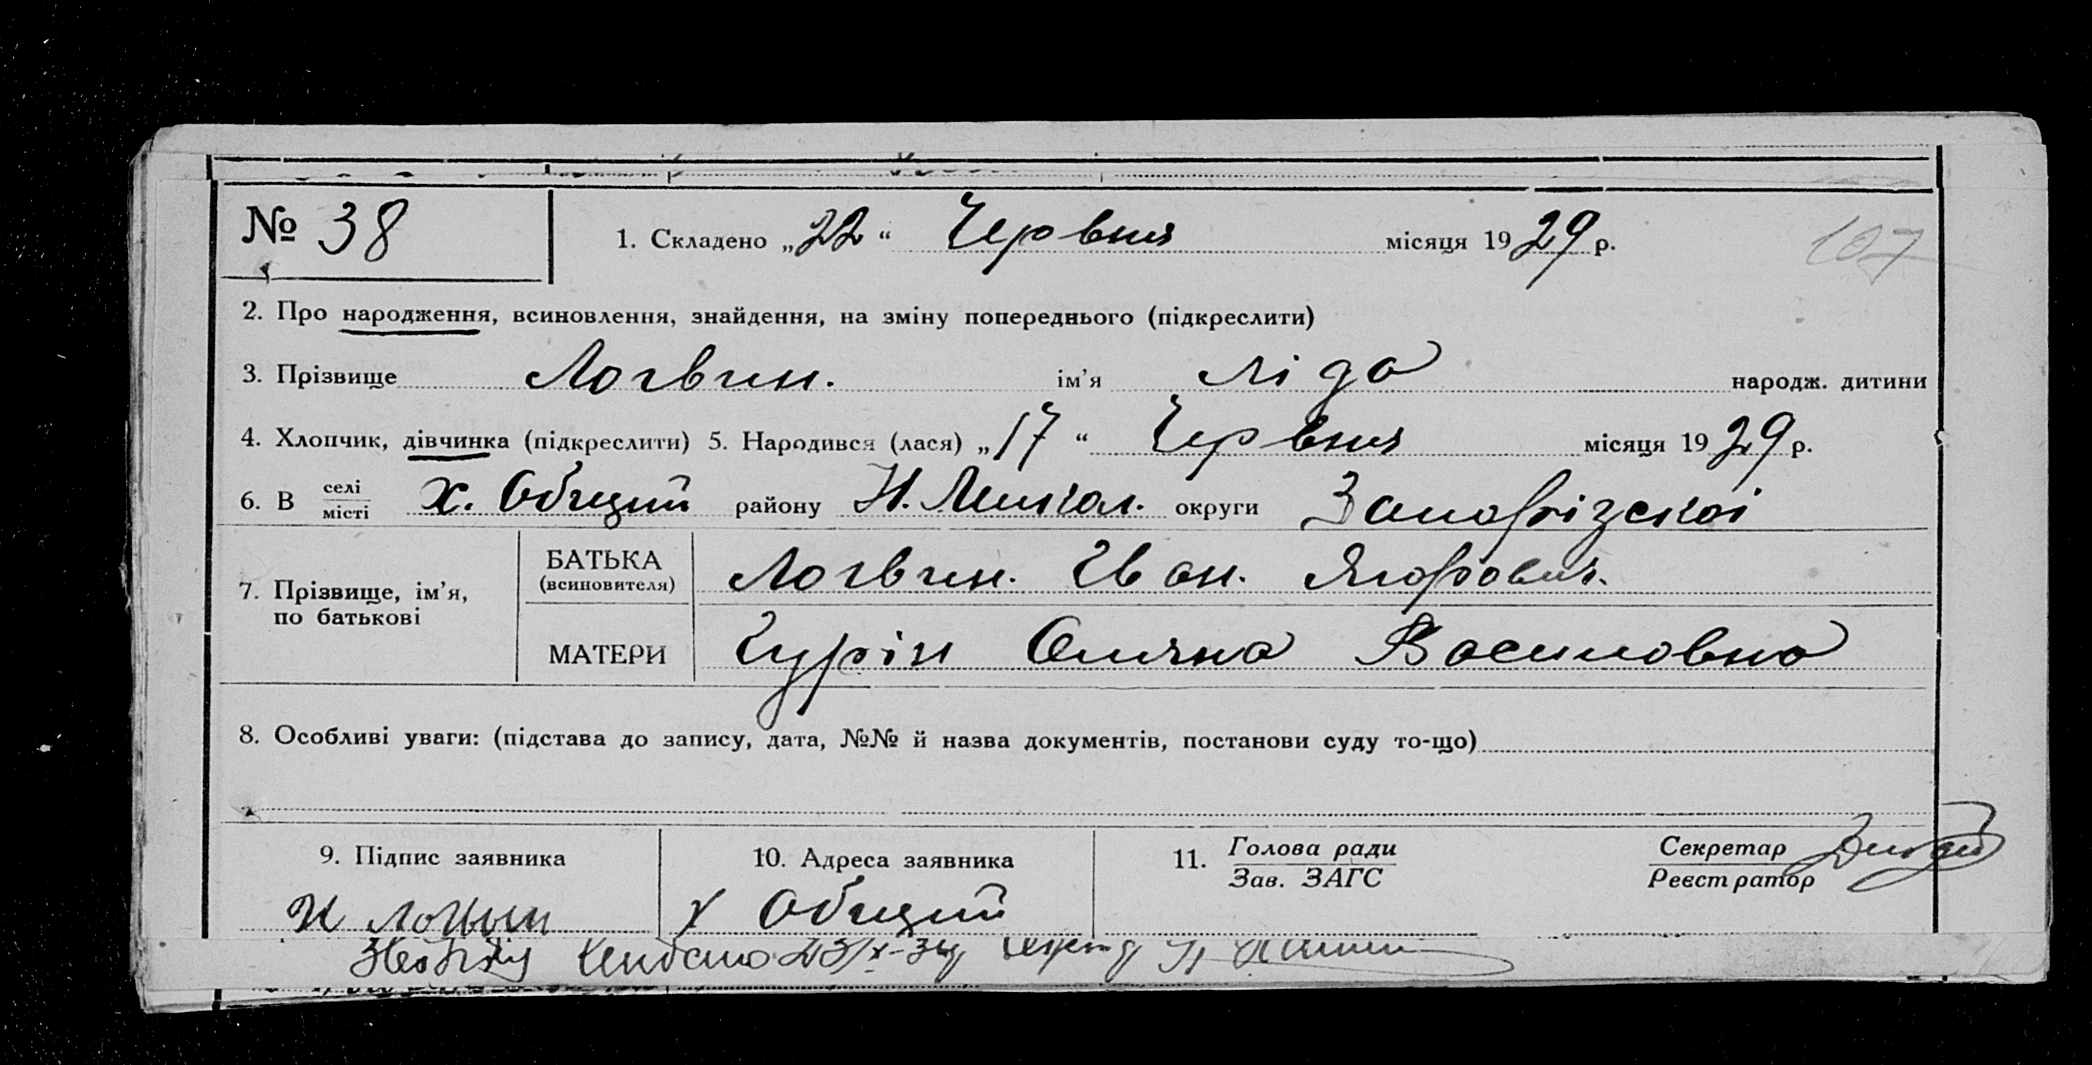 № 38
1. Складено „22“ Червня місяця 1929 р.
107
2. Про народження, всиновлення, знайдення, на зміну попереднього (підкреслити)
3. Прізвище Логвин. ім’я Ліда народж. дитини
4. Хлопчик, дівчинка (підкреслити) 5. Народився (лася) „17“ Червня місяця 1929 р.
6. В селі місті х. Общий району Н. Микол. округи Запорізскоі
7. Прізвище, ім’я, по батькові
БАТЬКА (всиновителя) Логвин. Іван. Ягорович.
МАТЕРИ Чурін Оляна Василовна
8. Особливі уваги: (підстава до запису, дата, №№ й назва документів, постанови суду то-що)
9. Підпис заявника
10. Адреса заявника
11. Голова ради Зав. ЗАГС
Секретар Реєстратор
И Логвин
х Общий